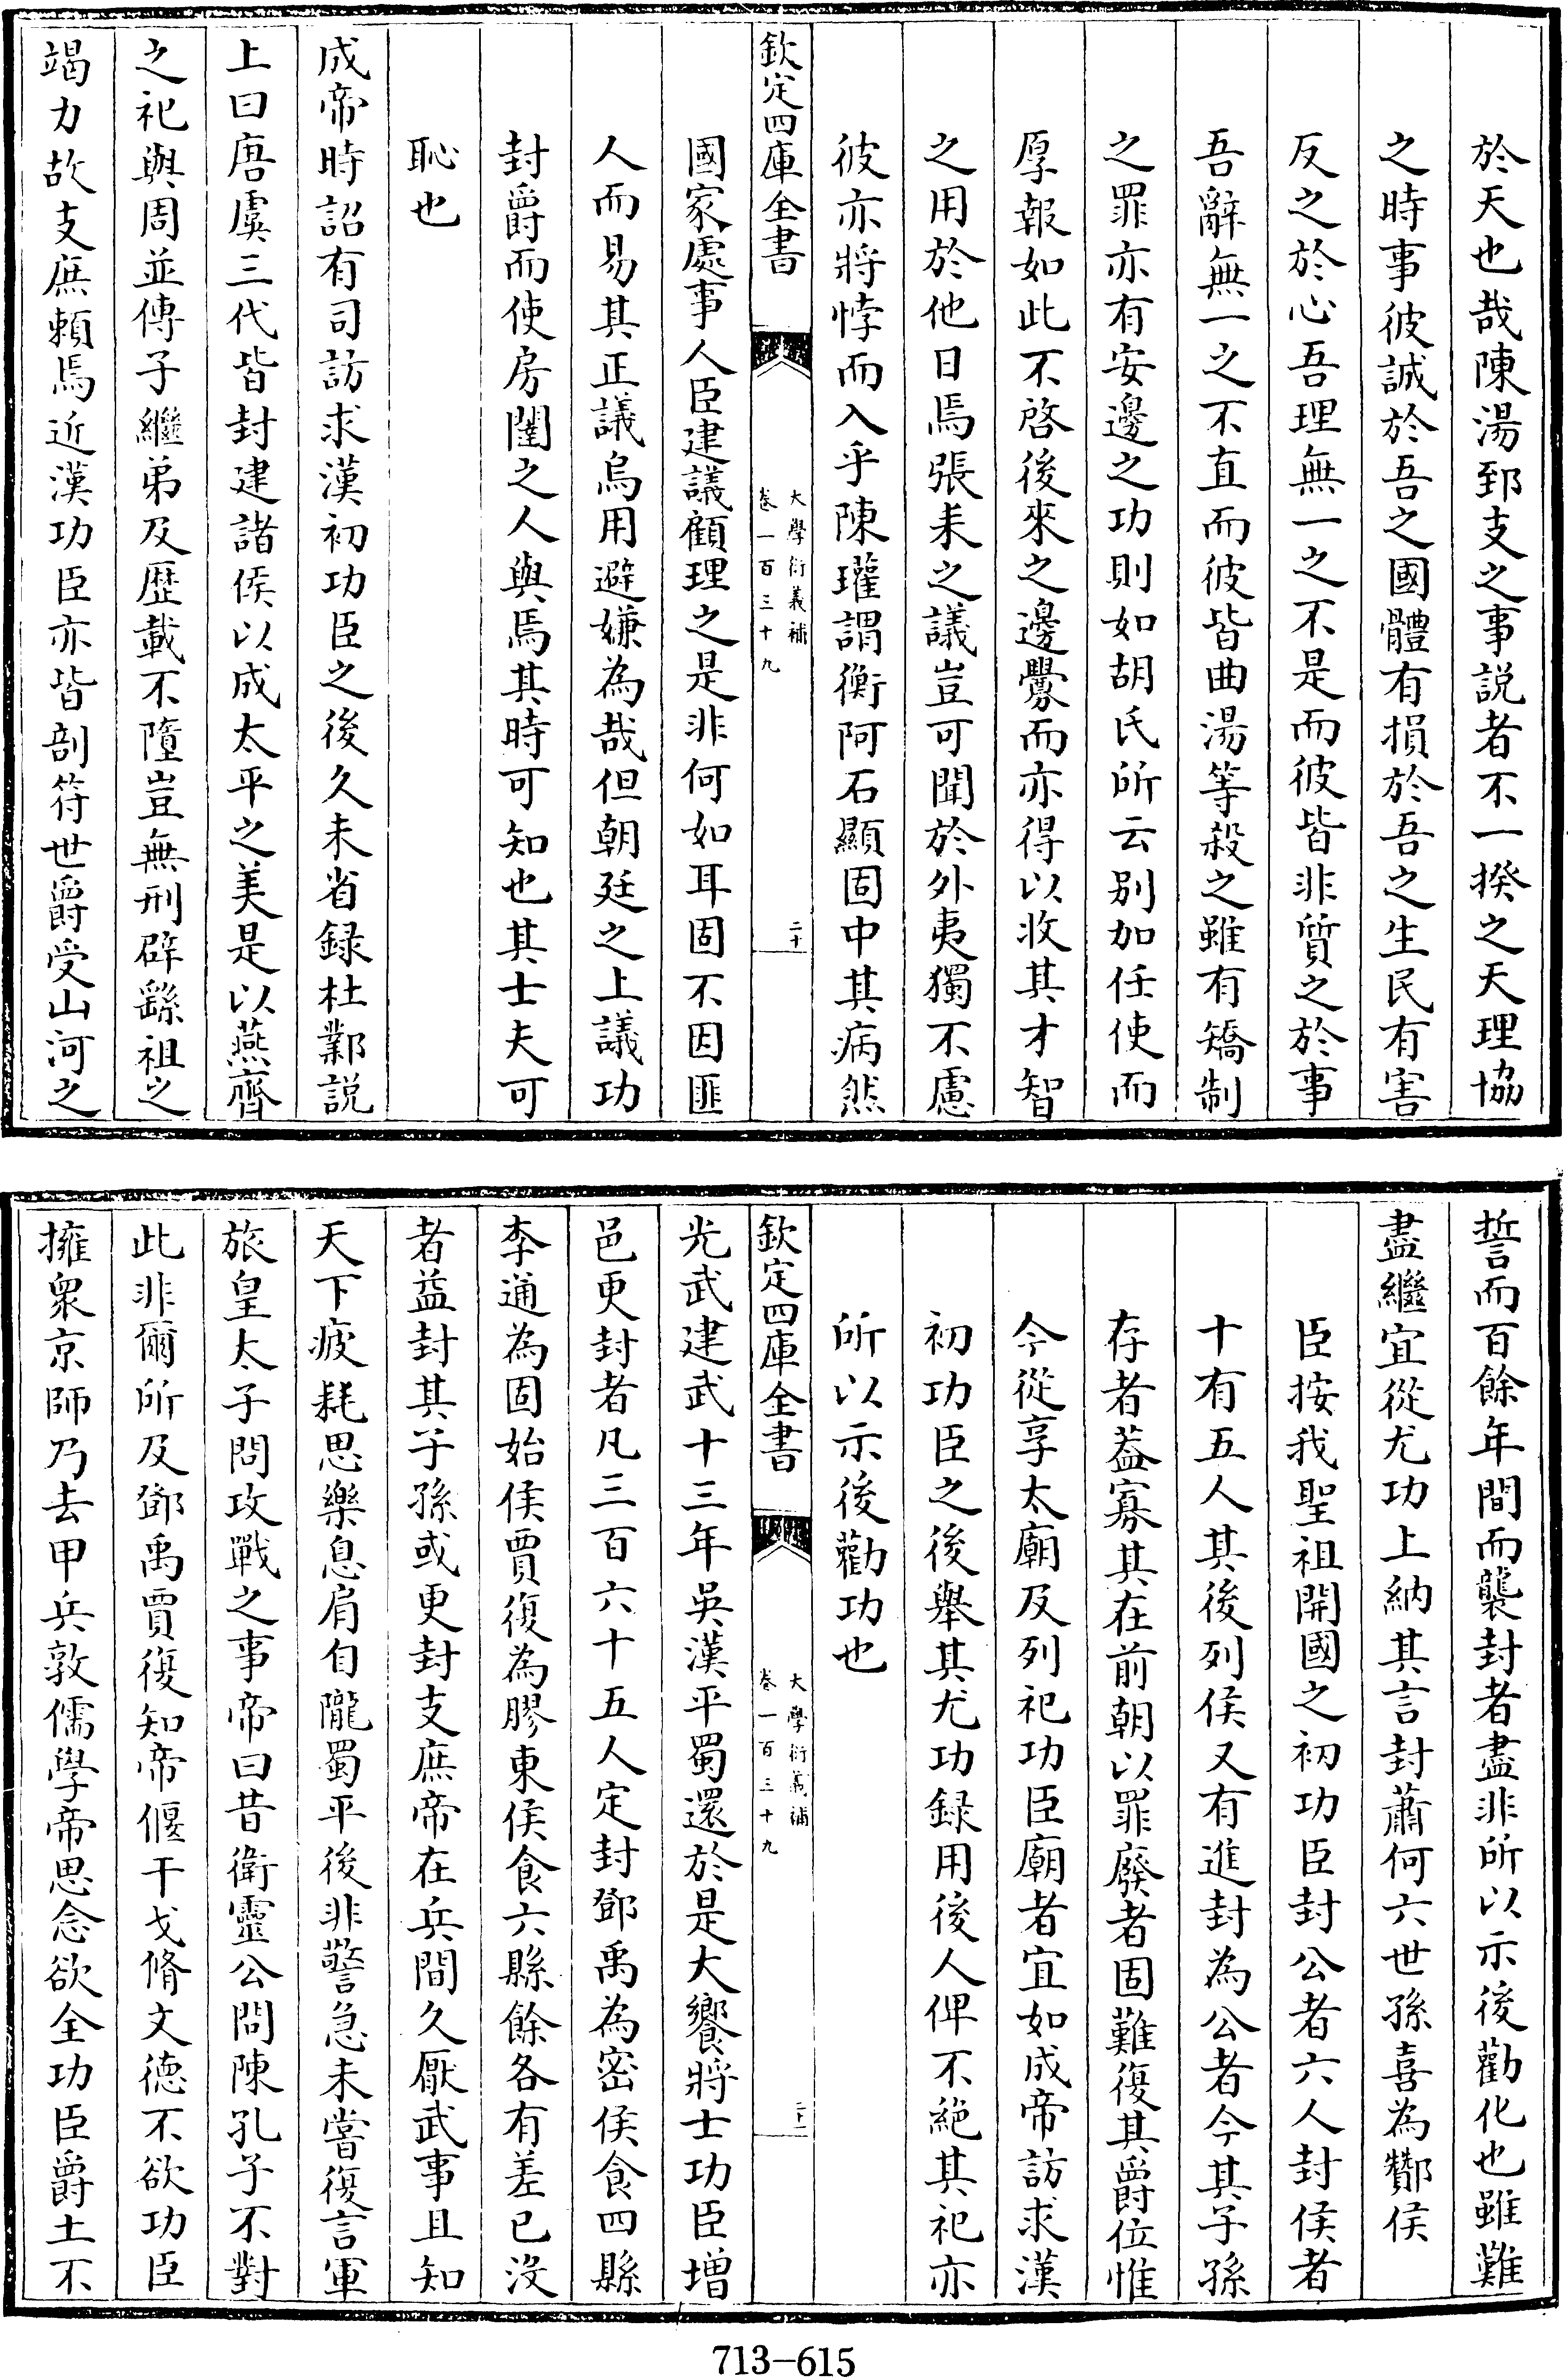 於天也哉陳湯郅支之事説者不一揆之天理協
之時事彼誠於吾之國體有損於吾之生民有害
反之於心吾理無一之不是而彼皆非質之於事
吾辭無一之不直而彼皆曲湯等殺之雖有矯制
之罪亦有安邊之功則如胡氏所云别加任使而
厚報如此不啓後來之邊釁而亦得以收其才智
之用於他日焉張耒之議豈可聞於外夷獨不慮
彼亦將悖而入乎陳瓘謂衡阿石顯固中其病然
欽定四庫全書
大學衍義補
卷一百三十九
二十
國家處事人臣建議顧理之是非何如耳固不因匪
人而易其正議烏用避嫌為哉但朝廷之上議功
封爵而使房闥之人與焉其時可知也其士夫可
恥也
成帝時詔有司訪求漢初功臣之後久未省録杜鄴説
上曰唐虞三代皆封建諸侯以成太平之美是以燕齊
之祀與周並傳子繼弟及歷載不隳豈無刑辟繇祖之
竭力故支庶賴焉近漢功臣亦皆剖符世爵受山河之
誓而百餘年間而襲封者盡非所以示後勸化也雖難
盡繼宜從尤功上納其言封蕭何六世孫喜為酇侯
臣按我聖祖開國之初功臣封公者六人封侯者
十有五人其後列侯又有進封為公者今其子孫
存者蓋寡其在前朝以罪廢者固難復其爵位惟
今從享太廟及列祀功臣廟者宜如成帝訪求漢
初功臣之後舉其尤功録用後人俾不絶其祀亦
所以示後勸功也
欽定四庫全書
大學衍義補
卷一百三十九
二十一
光武建武十三年吳漢平蜀還於是大饗將士功臣增
邑更封者凡三百六十五人定封鄧禹為密侯食四縣
李通為固始侯賈復為膠東侯食六縣餘各有差已沒
者益封其子孫或更封支庶帝在兵間久厭武事且知
天下疲耗思樂息肩自隴蜀平後非警急未嘗復言軍
旅皇太子問攻戰之事帝曰昔衛靈公問陳孔子不對
此非爾所及鄧禹賈復知帝偃干戈脩文德不欲功臣
擁衆京師乃去甲兵敦儒學帝思念欲全功臣爵土不
713-615